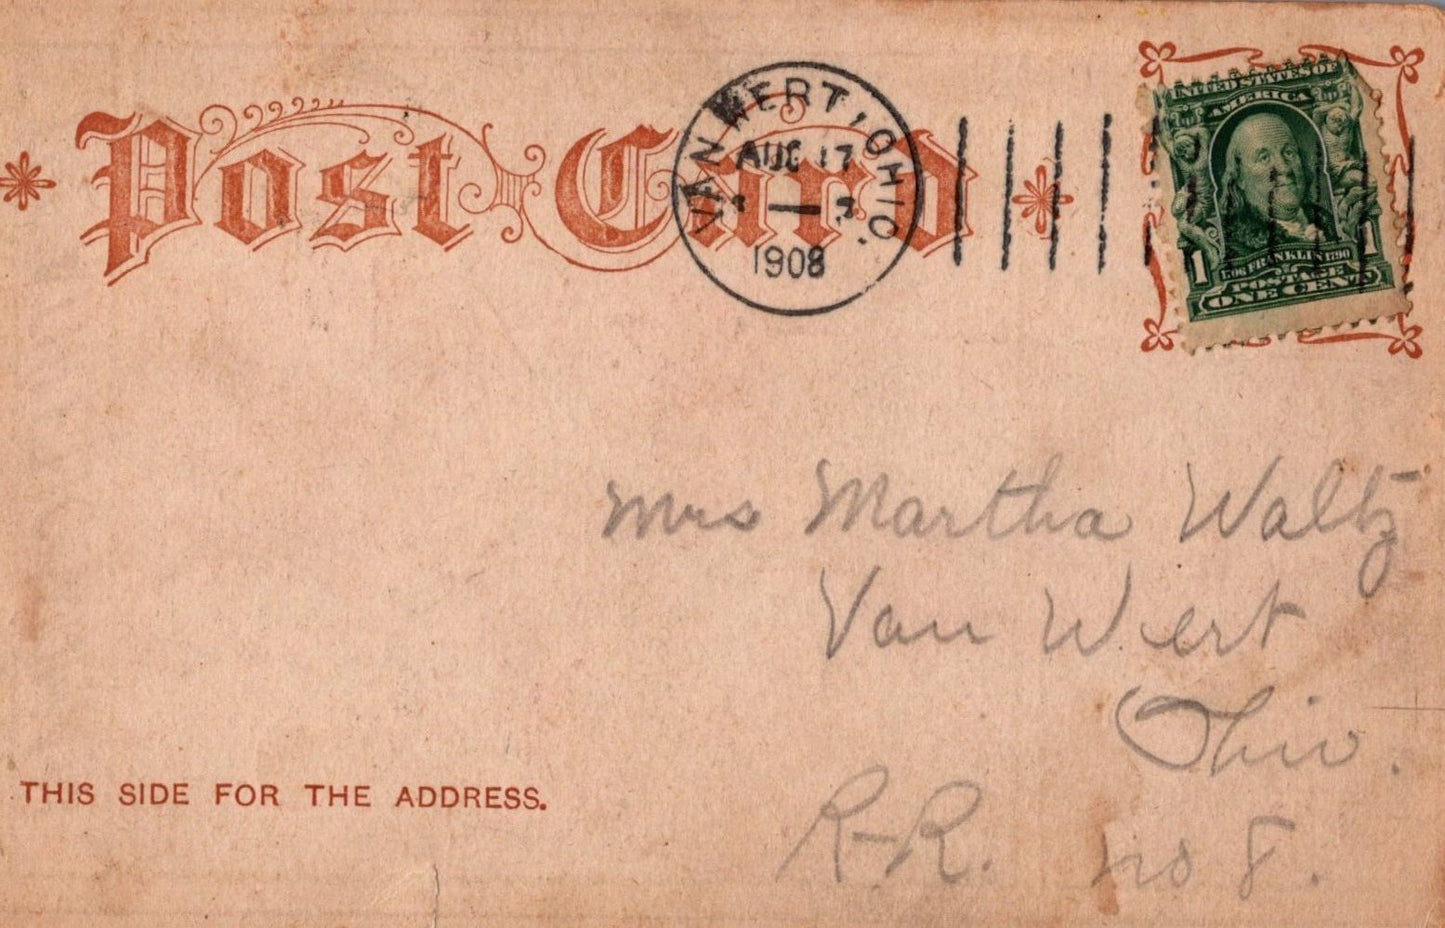 Post Card
VAN WERT, OHIO.
AUG 17
1908
UNITED STATES OF
AMERICA
1 1
1706 FRANKLIN 1790
POSTAGE
ONE CENT
Mrs Martha Waltz
Van Wert
Ohio.
R-R. no 8.
THIS SIDE FOR THE ADDRESS.